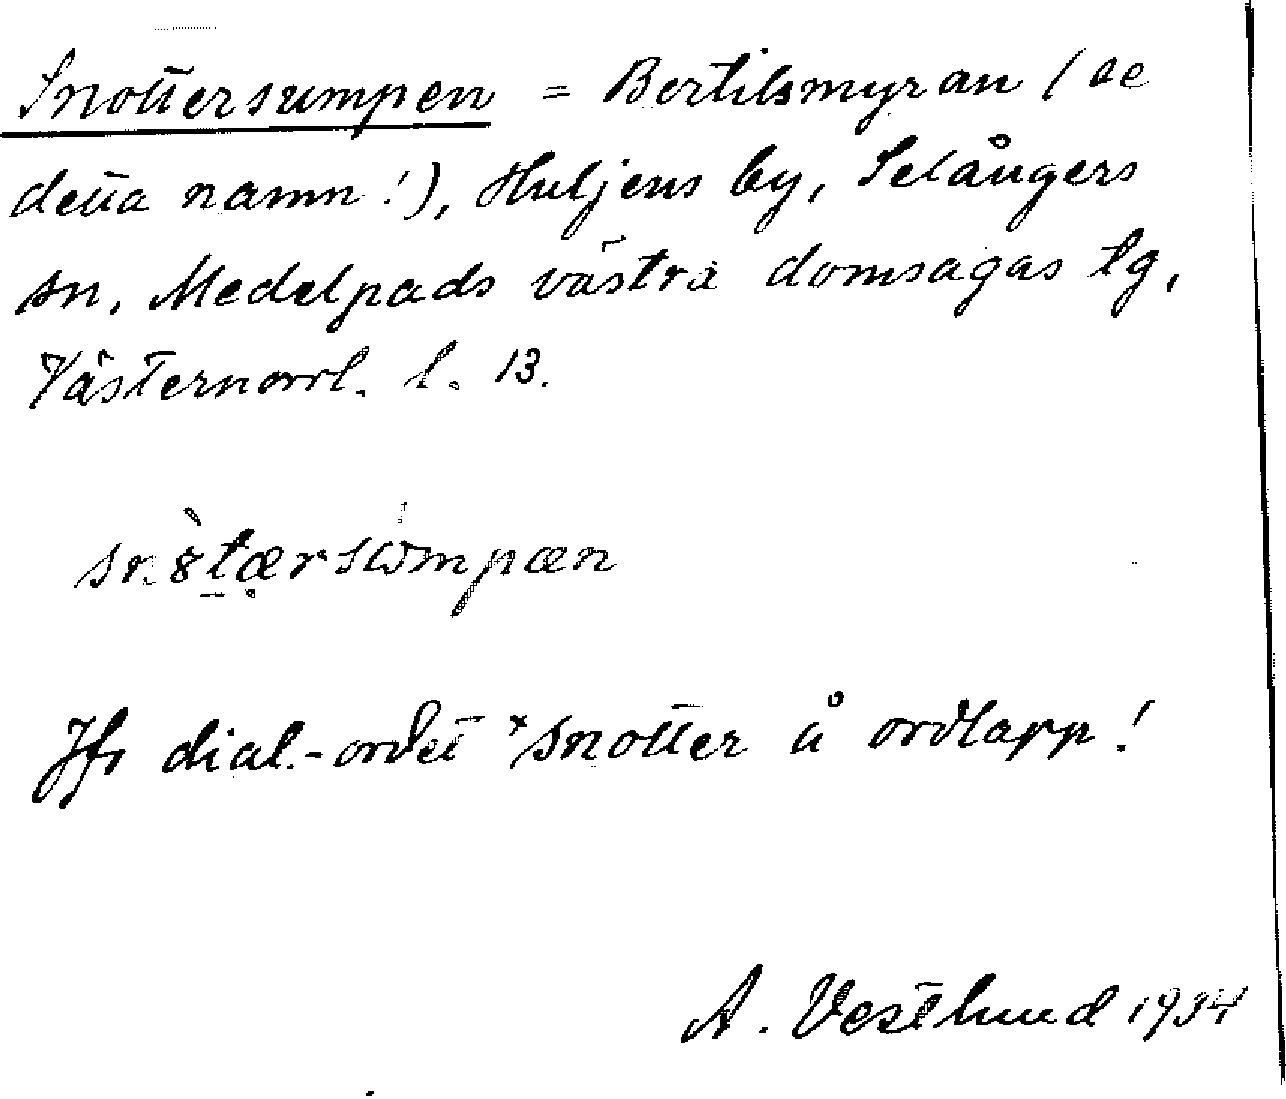 Snottersumpen = Bertilsmyran (se
detta namn!), Huljens by, Selångers
sn, Medelpads västra domsagas tg,
Västernorrl. l. 13.
Jfr dial.-ordet *snotter å ordlapp!
A. Vestlund 1934